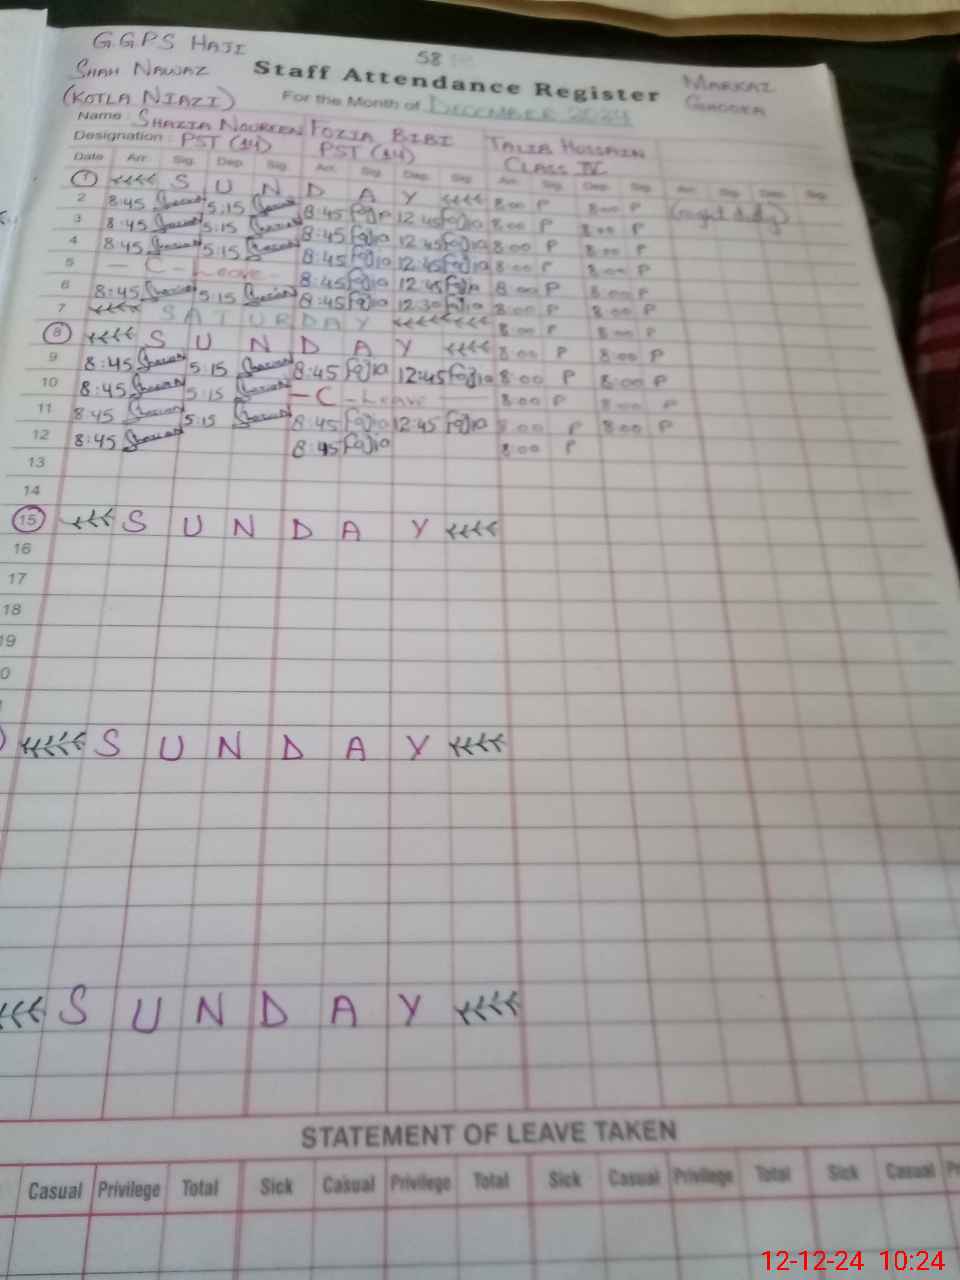 58
G.G.P.S HAJI
SHAH NAWAZ
(KOTLA NIAZI)
Staff Attendance Register
MARKAZ
For the Month of DECEMBER 2024
Name: SHAZIA NOUREEN FOZIA BIBI TALIB HUSSAIN
Designation: PST (14) PST (14) CLASS IV
Date Arr. Sig. Dep. Sig. Arr. Sig. Dep. Sig. Arr. Sig. Dep. Sig. Arr. Sig. Dep. Sig.
1 S U N D A Y 8:00 P 8:00 P (night duty)
2 8:45 5:15 8:45 12:45 8:00 P 8:00 P
3 8:45 5:15 8:45 12:45 8:00 P 8:00 P
4 8:45 5:15 8:45 12:45 8:00 P 8:00 P
5 – C – Leave 8:45 12:45 8:00 P 8:00 P
6 8:45 5:15 8:45 12:30 8:00 P 8:00 P
7 S A T U R D A Y 8:00 P 8:00 P
8 S U N D A Y 8:00 P 8:00 P
9 8:45 5:15 8:45 12:45 8:00 P 8:00 P
10 8:45 5:15 – C – Leave 8:00 P 8:00 P
11 8:45 5:15 8:45 12:45 8:00 P 8:00 P
12 8:45 8:45 8:00 P
13
14
15 S U N D A Y
16
17
18
19
0
S U N D A Y
S U N D A Y
STATEMENT OF LEAVE TAKEN
Casual Privilege Total Sick Casual Privilege Total Sick Casual Privilege Total Sick Casual Pr
12-12-24 10:24